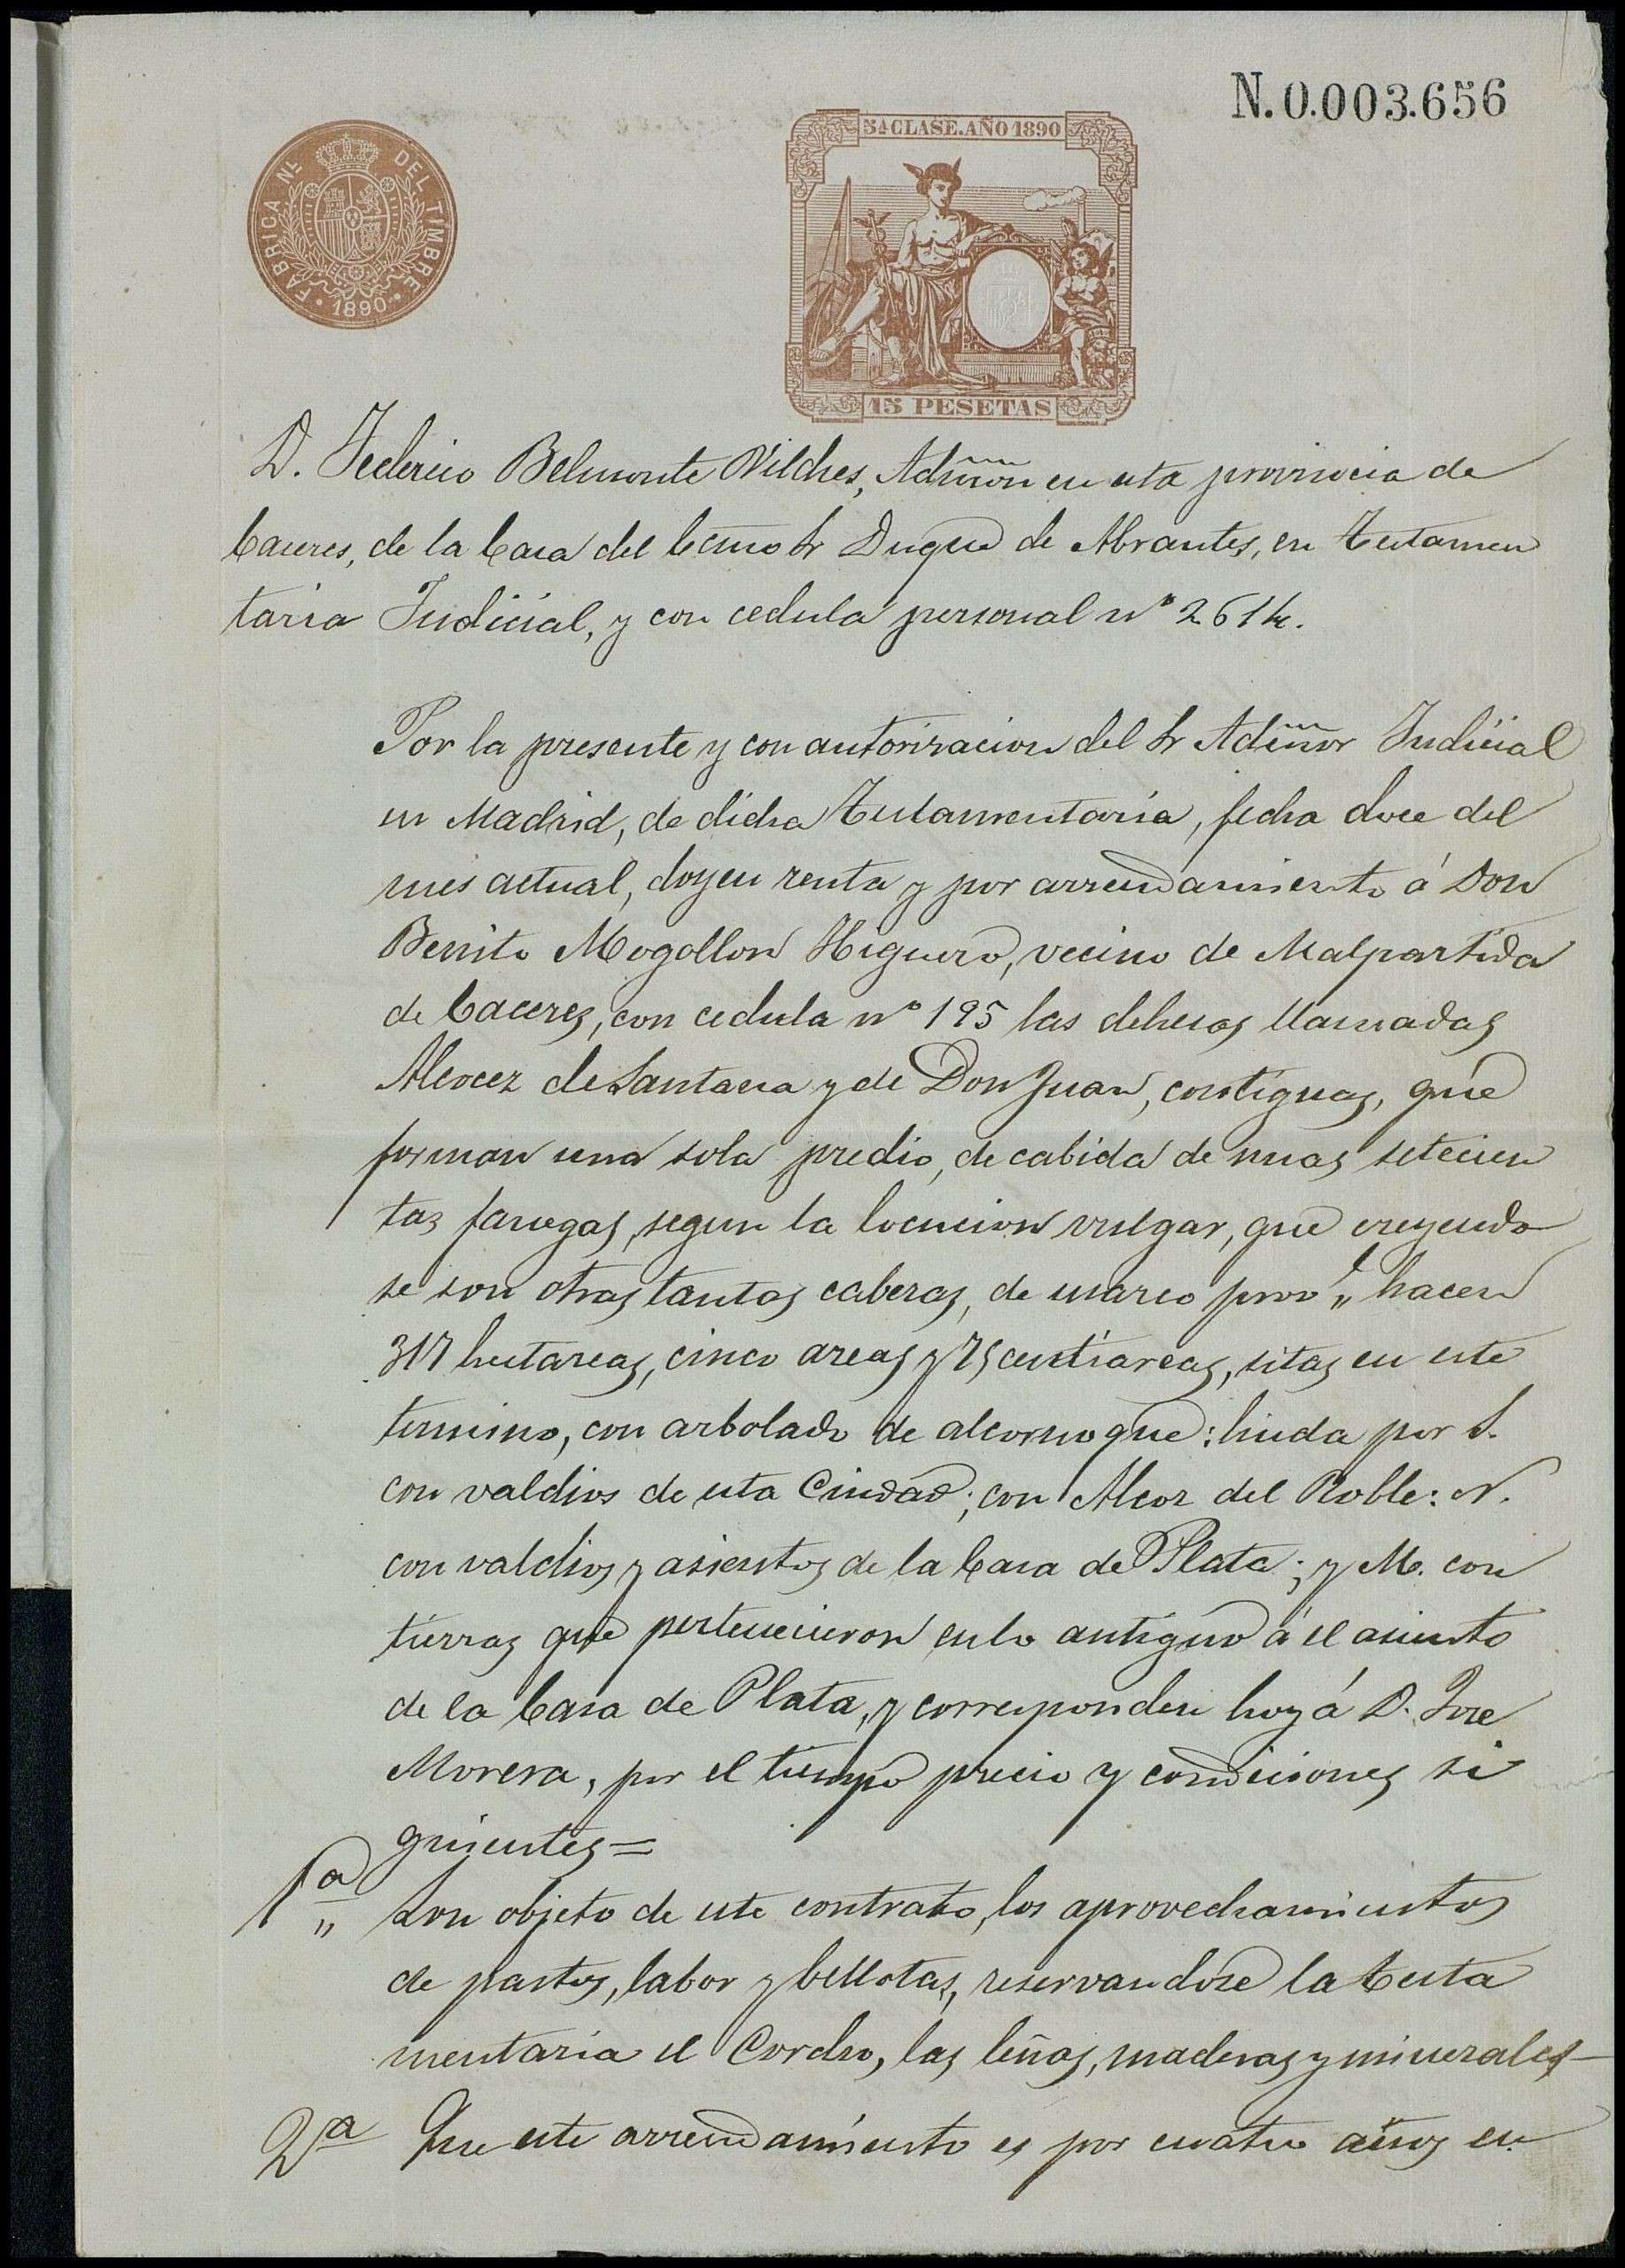 N.0.003.656
5ª CLASE. AÑO 1890
FABRICA Nˡ DEL TIMBRE
· 1890 ·
15 PESETAS
D. Federico Belmonte Vilches, Admon en esta provincia de
Caceres, de la Casa del Ecmo Sr Duque de Abrantes, en Testamen
taria Judicial, y con cedula personal nº 2614.
Por la presente y con autorizacion del Sr Admor Judicial
en Madrid, de dicha Testamentaria, fecha doce del
mes actual, doy en renta y por arrendamiento á Don
Benito Mogollon Higuero, vecino de Malpartida
de Caceres, con cedula nº 195 las dehesas llamadas
Alcocez de Santana y de Don Juan, contiguas, que
forman una sola predio, de cabida de unas setecien
tas fanegas, segun la locucion vulgar, que creyendo
se son otras tantas cabezas, de marco prov.l hacen
317 hectareas, cinco areas y 75 centiareas, sitas en este
termino, con arbolado de alcornoque: linda por S.
con valdios de esta Ciudad; con Alcoz del Roble: N.
con valdios y asientos de la Casa de Plata; y M. con
tierras que pertenecieron en lo antiguo á el asiento
de la Casa de Plata, y corresponden hoy á D. Jose
Morera, por el tiempo precio y condiciones si
guientes=
1ª Son objeto de este contrato, los aprovechamientos
de pastos, labor y bellotas, reservandose la Testa
mentaria el Corcho, las leñas, maderas y minerales—
2ª Que este arrendamiento es por cuatro años en